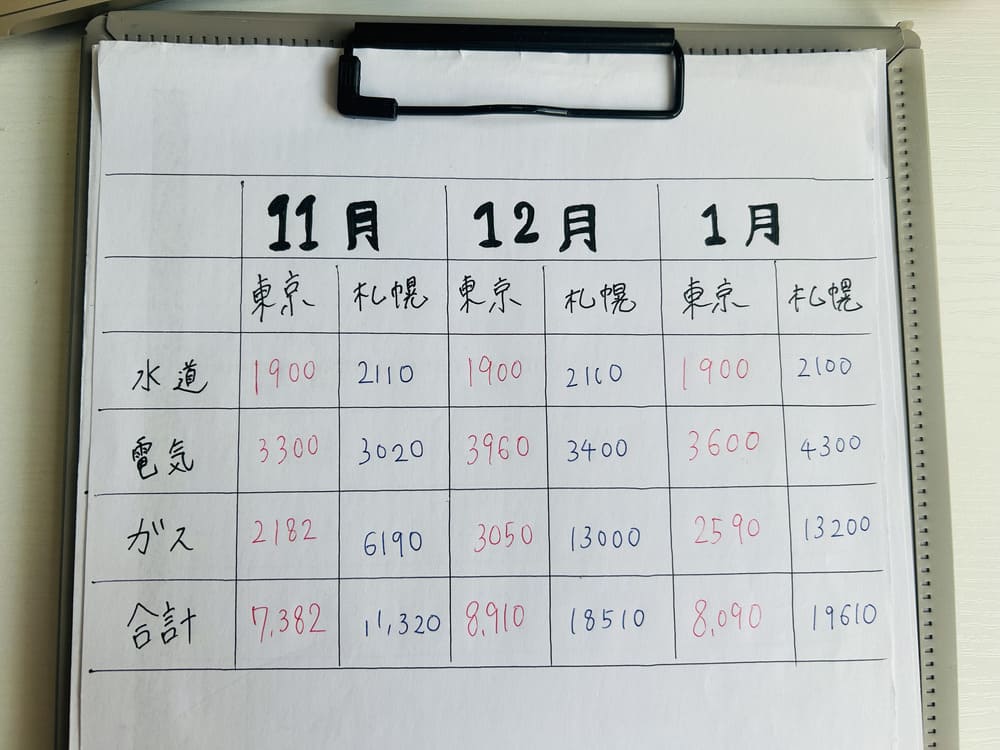 11月 12月 1月
東京 札幌 東京 札幌 東京 札幌
水道 1900 2110 1900 2110 1900 2100
電気 3300 3020 3960 3400 3600 4300
ガス 2182 6190 3050 13000 2590 13200
合計 7,382 11,320 8,910 18510 8,090 19610